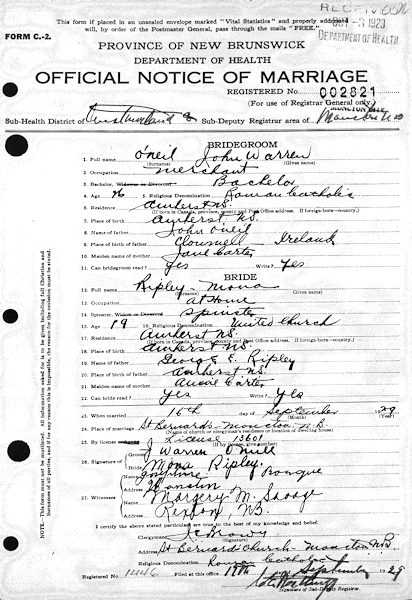 RECEIVED
This form if placed in an unsealed envelope marked "Vital Statistics" and properly addressed
will, by order of the Postmaster General, pass through the mails "FREE."
OCT -3 1929
DEPARTMENT OF HEALTH
FORM C.-2.
PROVINCE OF NEW BRUNSWICK
DEPARTMENT OF HEALTH
OFFICIAL NOTICE OF MARRIAGE
REGISTERED NO. 002821
(For use of Registrar General only)
Sub-Health District of Westmorland Sub-Deputy Registrar area of Moncton
BRIDEGROOM
1. Full name O'neil John Warren
(Surname) (Given names)
2. Occupation merchant
3. Bachelor, Widower or Divorced Bachelor
4. Age 5. Religious Denomination Roman Catholic
6. Residence Amherst N.S.
(If born in Canada, province, county and Post Office address. If foreign-born—country.)
7. Place of birth Amherst N.S.
8. Name of father John Oneil
9. Place of birth of father Clonmell Ireland
10. Maiden name of mother Jane Carter
11. Can bridegroom read? Yes Write? Yes
BRIDE
12. Full name Ripley - Mona
(Surname) (Given names)
13. Occupation At Home
14. Spinster, Widow or Divorced Spinster
15. Age 19 16. Religious Denomination United Church
17. Residence Amherst N.S.
(If born in Canada, province, county and Post Office address. If foreign-born—country.)
18. Place of birth Amherst N.S.
19. Name of father George E. Ripley
20. Place of birth of father Amherst N.S.
21. Maiden name of mother Annie Carter
22. Can bride read? Yes Write? Yes
23. When married 16th day of September 1929
(Month) (Year)
24. Place of marriage St Bernards - Moncton N.B.
(Name of church or clergyman's residence or location of dwelling house)
25. By license License 13601
(If by license, give number)
26. Signature of J Warren O'Neill
Mona Ripley
27. Witnesses Josephine Bourque
Moncton
Margery M. Savage
Rexton, N.B.
I certify the above stated particulars are true to the best of my knowledge and belief.
(Signature of Clergyman)
Address St Bernard Church - Moncton N.B.
Religious Denomination Roman Catholic
Registered No. Filed at this office 19th September 1929
Signature of Sub-Deputy Registrar.
NOTE.—This form must not be mutilated. All information asked for is to be given including full Christian and
Surnames of all persons. If this is impossible, the reason for the omission must be stated.